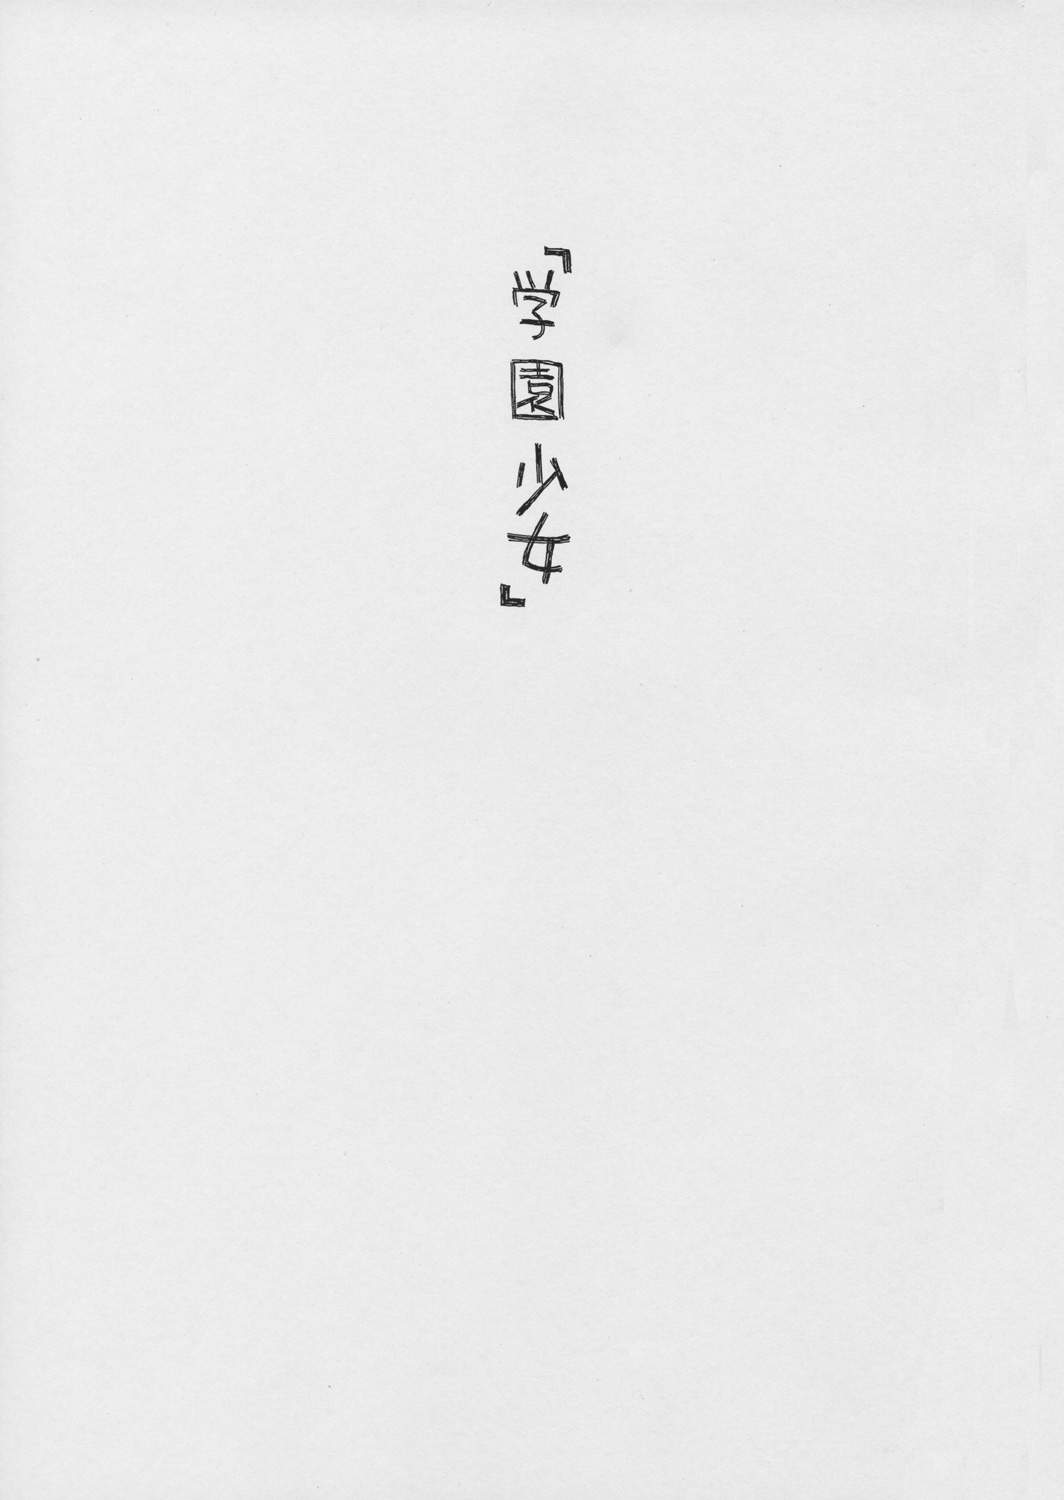 『学園少女』